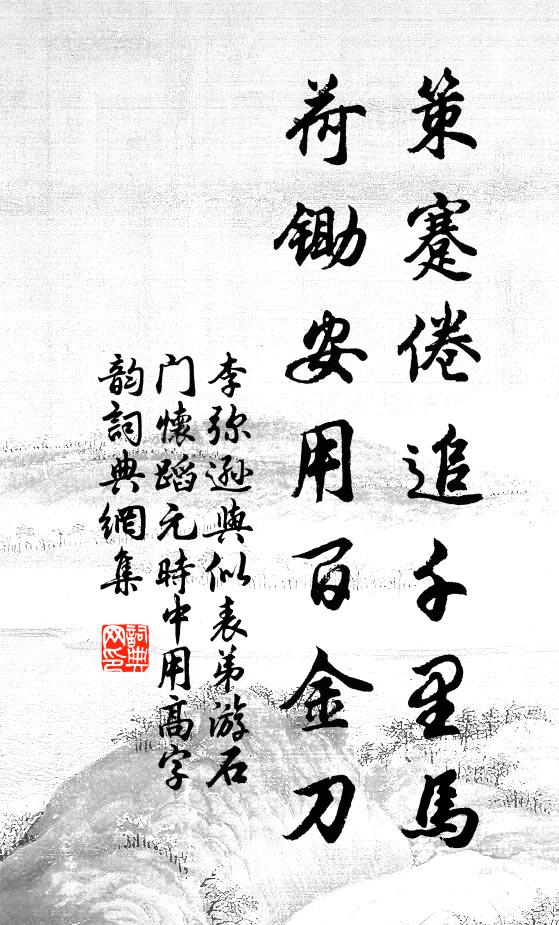 策蹇倦追千里馬
荷鋤安用百金刀
李弥遜與似表弟游石
门懷蹈元時中用高字
韵詞典網集
詞典
网印